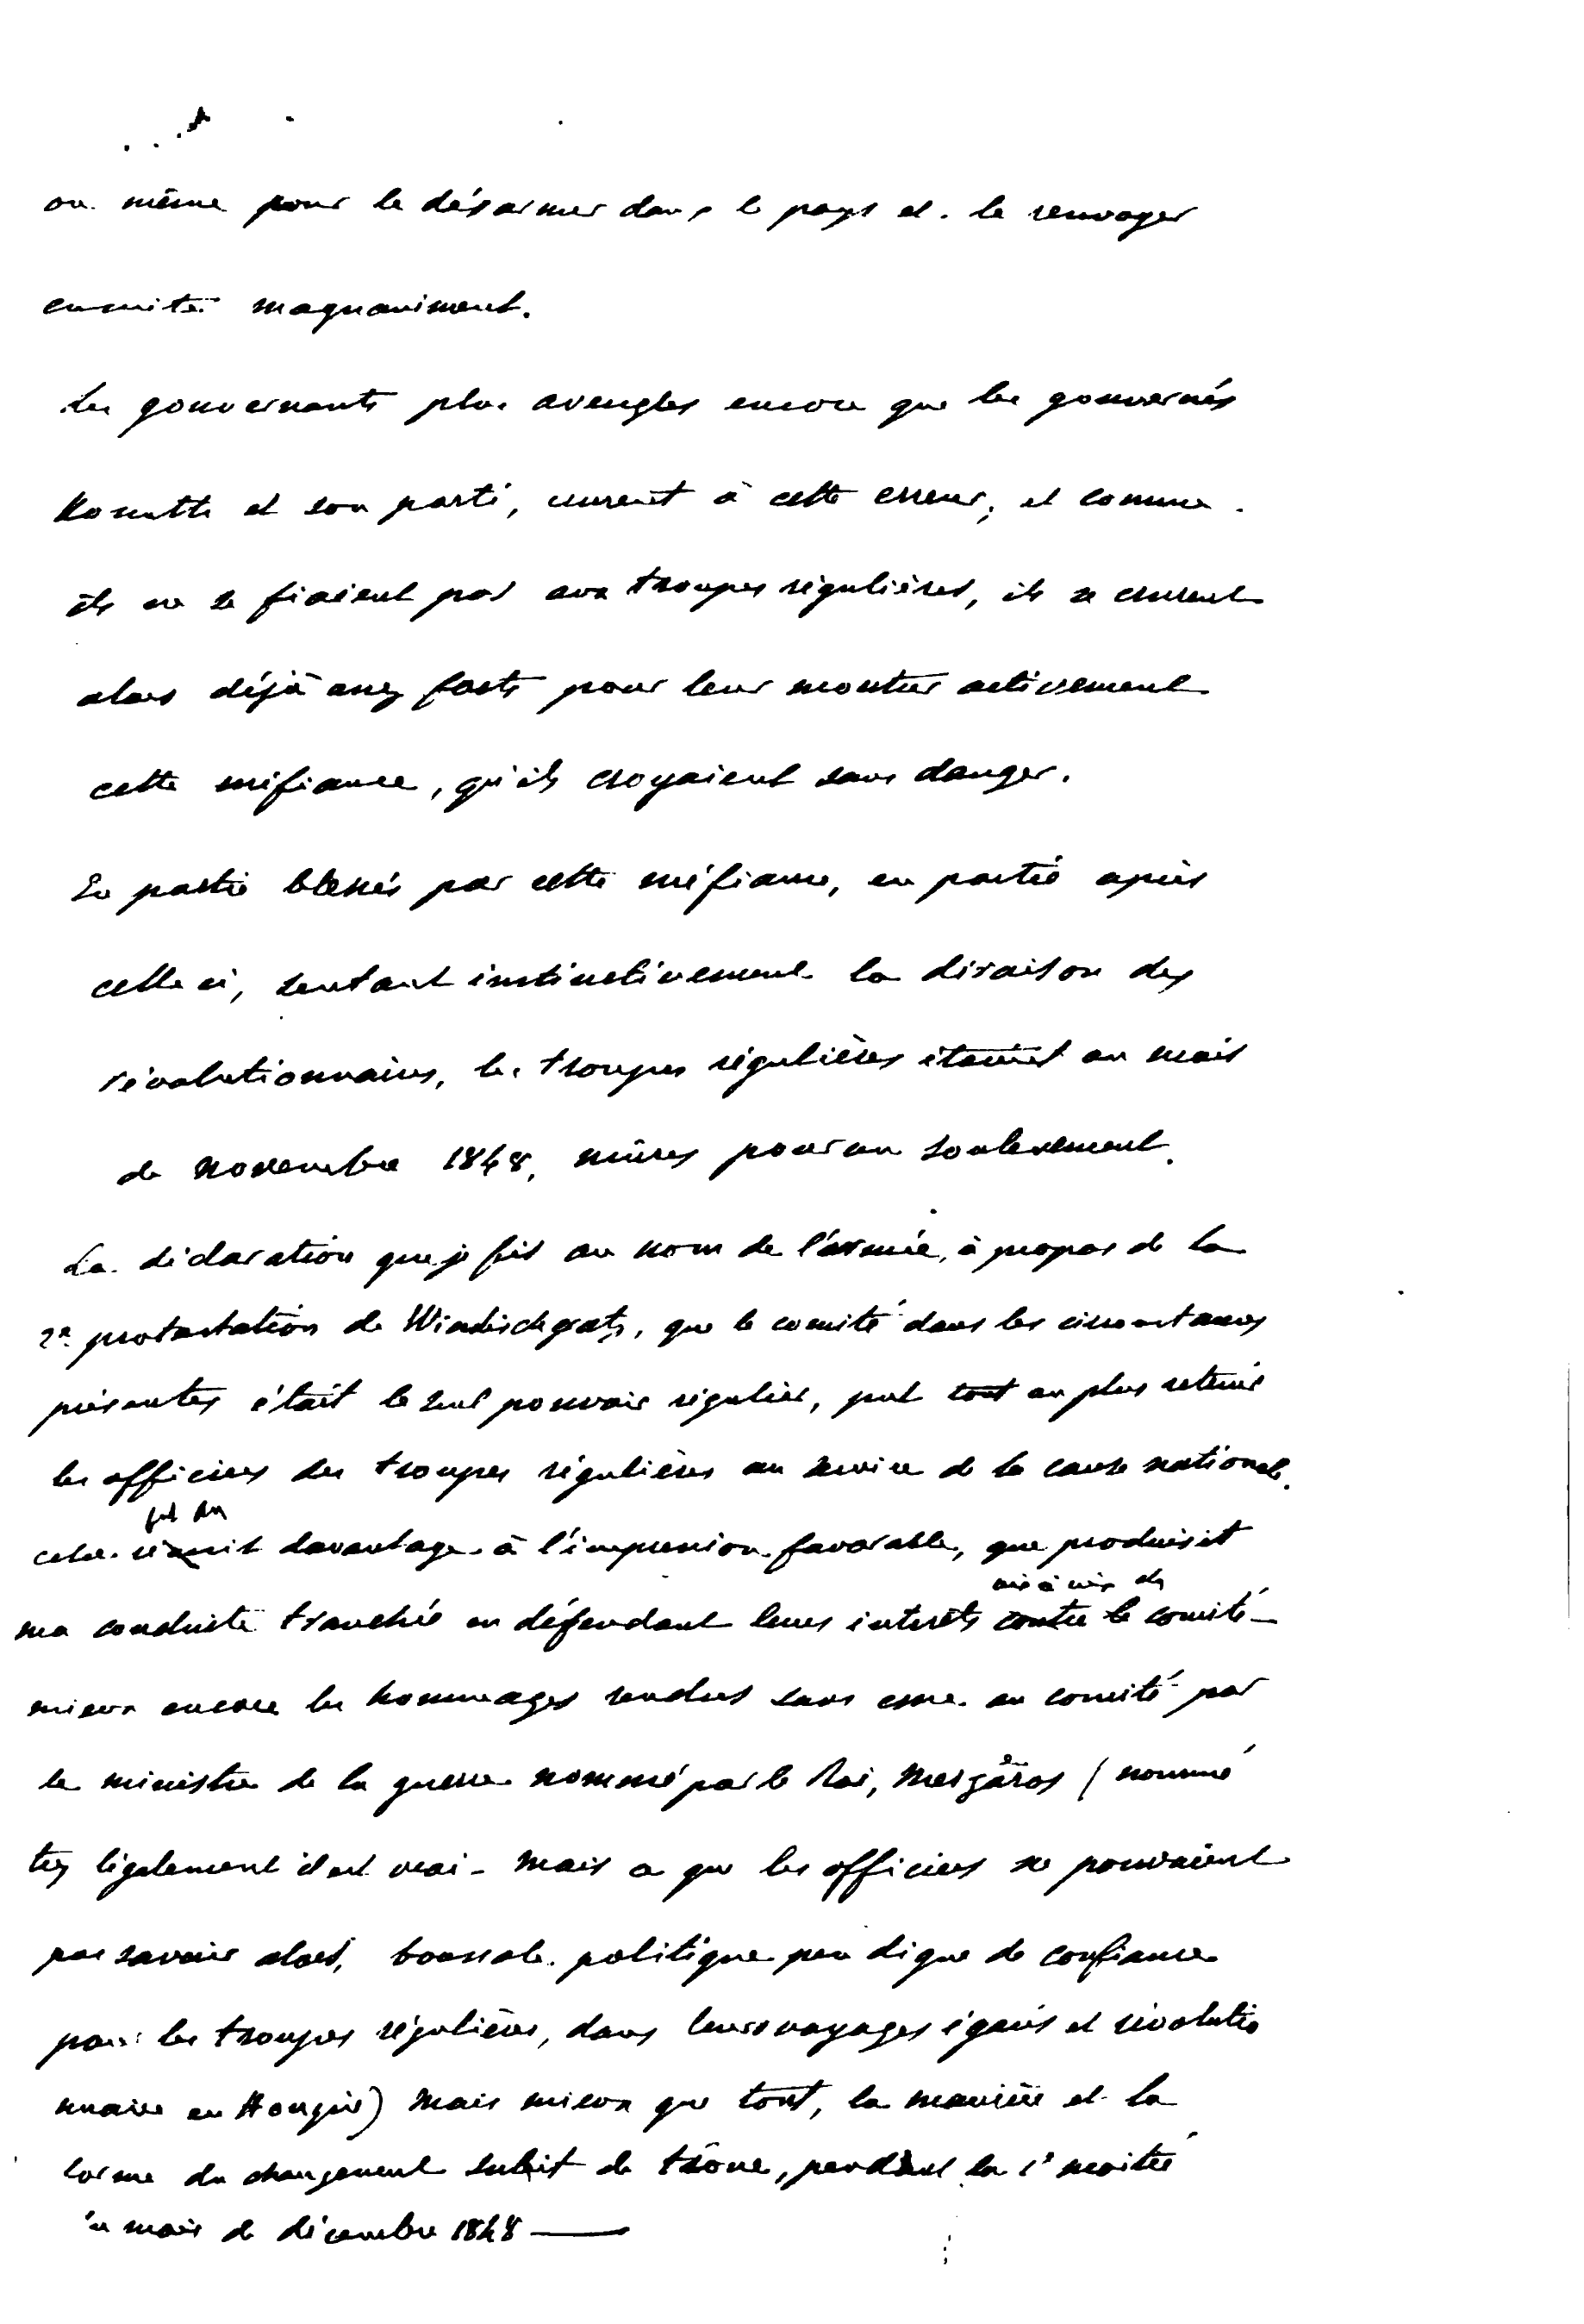 ou même pour le désarmer dans le pays et le renvoyer
ensuite magnaniment.
Les gouvernants plus aveugles encore que les gouvernés
Kossuth et son parti, crurent à cette erreur, et comme
ils ne se fiaient pas aux troupes régulières, ils se crurent
alors déjà assez forts pour leur montrer activement
cette méfiance, qu'ils croyaient sans danger.
En partie blessés par cette méfiance, en partie après
celle ci, sentant instinctivement la diraison des
révolutionnaires, les troupes régulières étaient au mois
de Novembre 1848, mûres pour un soulevement.
La déclaration que je fis au nom de l'armée, à propos de la
2e protestation de Windischgratz, que le comité dans les circonstances
présentes était le seul pouvoir régulier, put tout au plus retenir
les officiers des troupes régulières au service de la cause nationale.
fut dû
cela davantage à l'impression favorable, que produisit
vis à vis du
ma conduite tranchée en défendant leurs interêts contre le comité -
mieux encore les hommages rendus sans cesse au comité par
le ministre de la guerre nommé par le Roi, Meszáros (nommé
très légalement il est vrai - Mais ce que les officiers ne pouvaient
pas savoir alors, boussole politique peu digne de confiance
pour les troupes régulières, dans leurs voyages égarés et révolutio
nnaire en Hongrie) Mais mieux que tout, la manière et la
forme du changement subit de trône, pendant la 1e moitié
du mois de décembre 1848 —